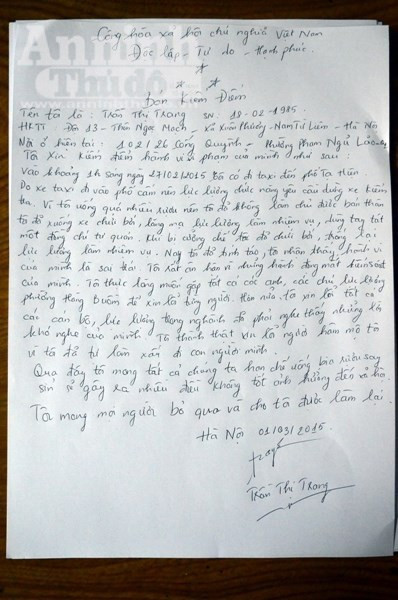 Anninh
Thủ đô
Cộng hòa xã hội chủ nghĩa Việt Nam
Độc lập - Tự do - Hạnh phúc.
Đơn Kiểm Điểm
Tên tôi là: Trần Thị Trang SN: 18-02-1985.
HKTT: Đội 13 - Thôn Ngọc Mạch - Xã Xuân Phương - Nam Từ Liêm - Hà Nội
Nơi ở hiện tại: 102/26 Cống Quỳnh - Phường Phạm Ngũ Lão
Tôi xin kiểm điểm hành vi vi phạm của mình như sau:
Vào khoảng 1h sáng ngày 27/02/2015 tôi có đi taxi đến phố Tạ Hiện
Do xe taxi đi vào phố cấm nên lực lượng chức năng yêu cầu dừng xe kiểm
tra. Vì tôi uống quá nhiều rượu nên tôi đã không làm chủ được bản thân
tôi đã xuống xe chửi bới, lăng mạ lực lượng làm nhiệm vụ, dùng tay tát
một đồng chí tự quản. Khi bị cưỡng chế tôi đã chửi bới, chống lại
lực lượng làm nhiệm vụ. Nay tôi đã tỉnh táo, tôi nhận thấy hành vi
của mình là sai trái. Tôi rất ân hận vì những hành động mất kiểm soát
của mình. Tôi thực lòng muốn gặp tất cả các anh, các chú lực lượng
phường Hàng Buồm để xin lỗi từng người. Hơn nữa tôi xin lỗi tất cả
các cán bộ, lực lượng trong nghành đã phải nghe thấy những lời
khó nghe của mình. Tôi thành thật xin lỗi người hâm mộ tôi
vì tôi đã tự làm xấu đi con người mình.
Qua đây tôi mong tất cả chúng ta hạn chế uống bia rượu say
sỉn sẽ gây ra nhiều điều không tốt ảnh hưởng đến xã hội.
Tôi mong mọi người bỏ qua và cho tôi được làm lại.
Hà Nội 01/03/2015.
Trần Thị Trang